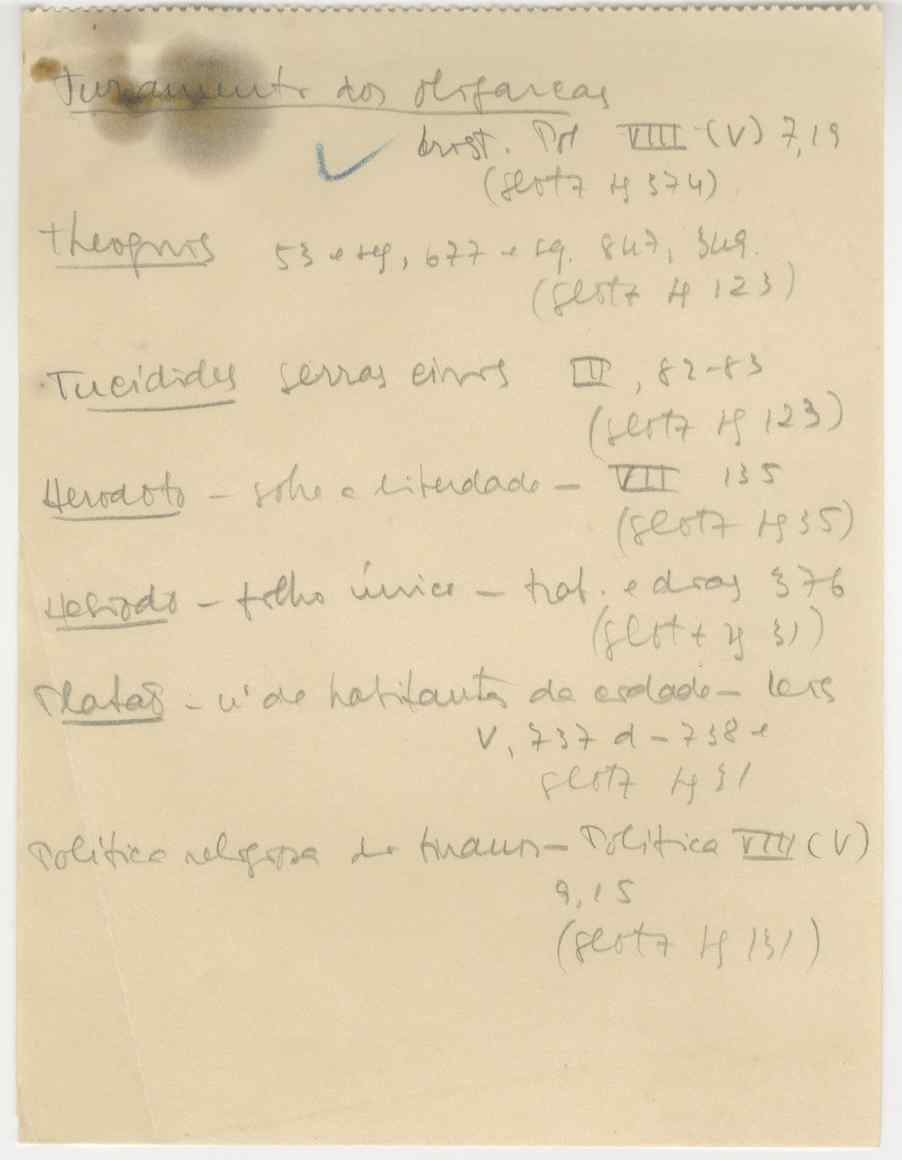 Juramento dos oligarcas
Arist. Pol VIII (V) 7,19
(Glotz pg 374)
Theognis 53 e sq, 677 e sq. 847, 349.
(Glotz pg 123)
Tucidides guerras civis III, 82-83
(Glotz pg 123)
Herodoto - sobre a liberdade - VII 135
(Glotz pg 35)
Hesiodo - filho único - trab. e dias 376
(Glotz pg 31)
Platão - nº de habitantes da cidade - Leis
V, 737 d - 738 e
Glotz pg 31
Politica religiosa do tirano - Politica VIII (V)
9,15
(Glotz pg 131)